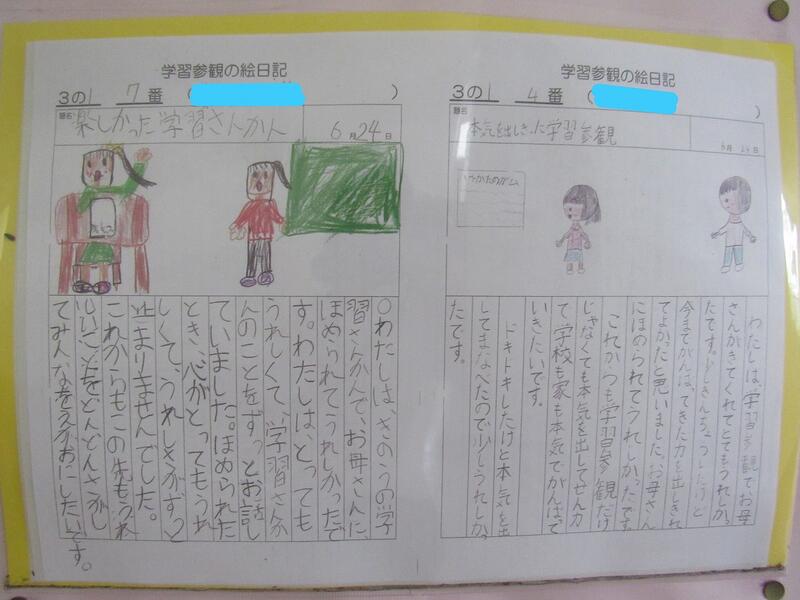 学習参観の絵日記
3の1 7番 ( )
題名
楽しかった学習さんかん
6月24日
○わたしは、きのうの学
習さんかんで、お母さんに、
ほめられてうれしかったで
す。わたしは、とっても
うれしくて、学習さんか
んのことをずっとお話し
ていました。ほめられた
とき、心がとってもうれ
しくて、うれしさがずっと
止まりませんでした。
これからもこの先もうれ
しいことをどんどんさがし
てみんなをえがおにしたいです。
学習参観の絵日記
3の1 4番 ( )
題名
本気を出しきった学習参観
6月24日
わたしは、学習参観でお母
さんがきてくれてとてもうれしかっ
たです。少しきんちょうしたけど
今までがんばってきた力を出しきれ
てよかったと思いました。お母さん
にほめられてうれしかったです。
これからも学習参観だけ
じゃなくても本気を出してぜん力
で学校も家も本気でがんばって
いきたいです。
ドキドキしたけど本気を出
してまなべたので少しうれしかっ
たです。